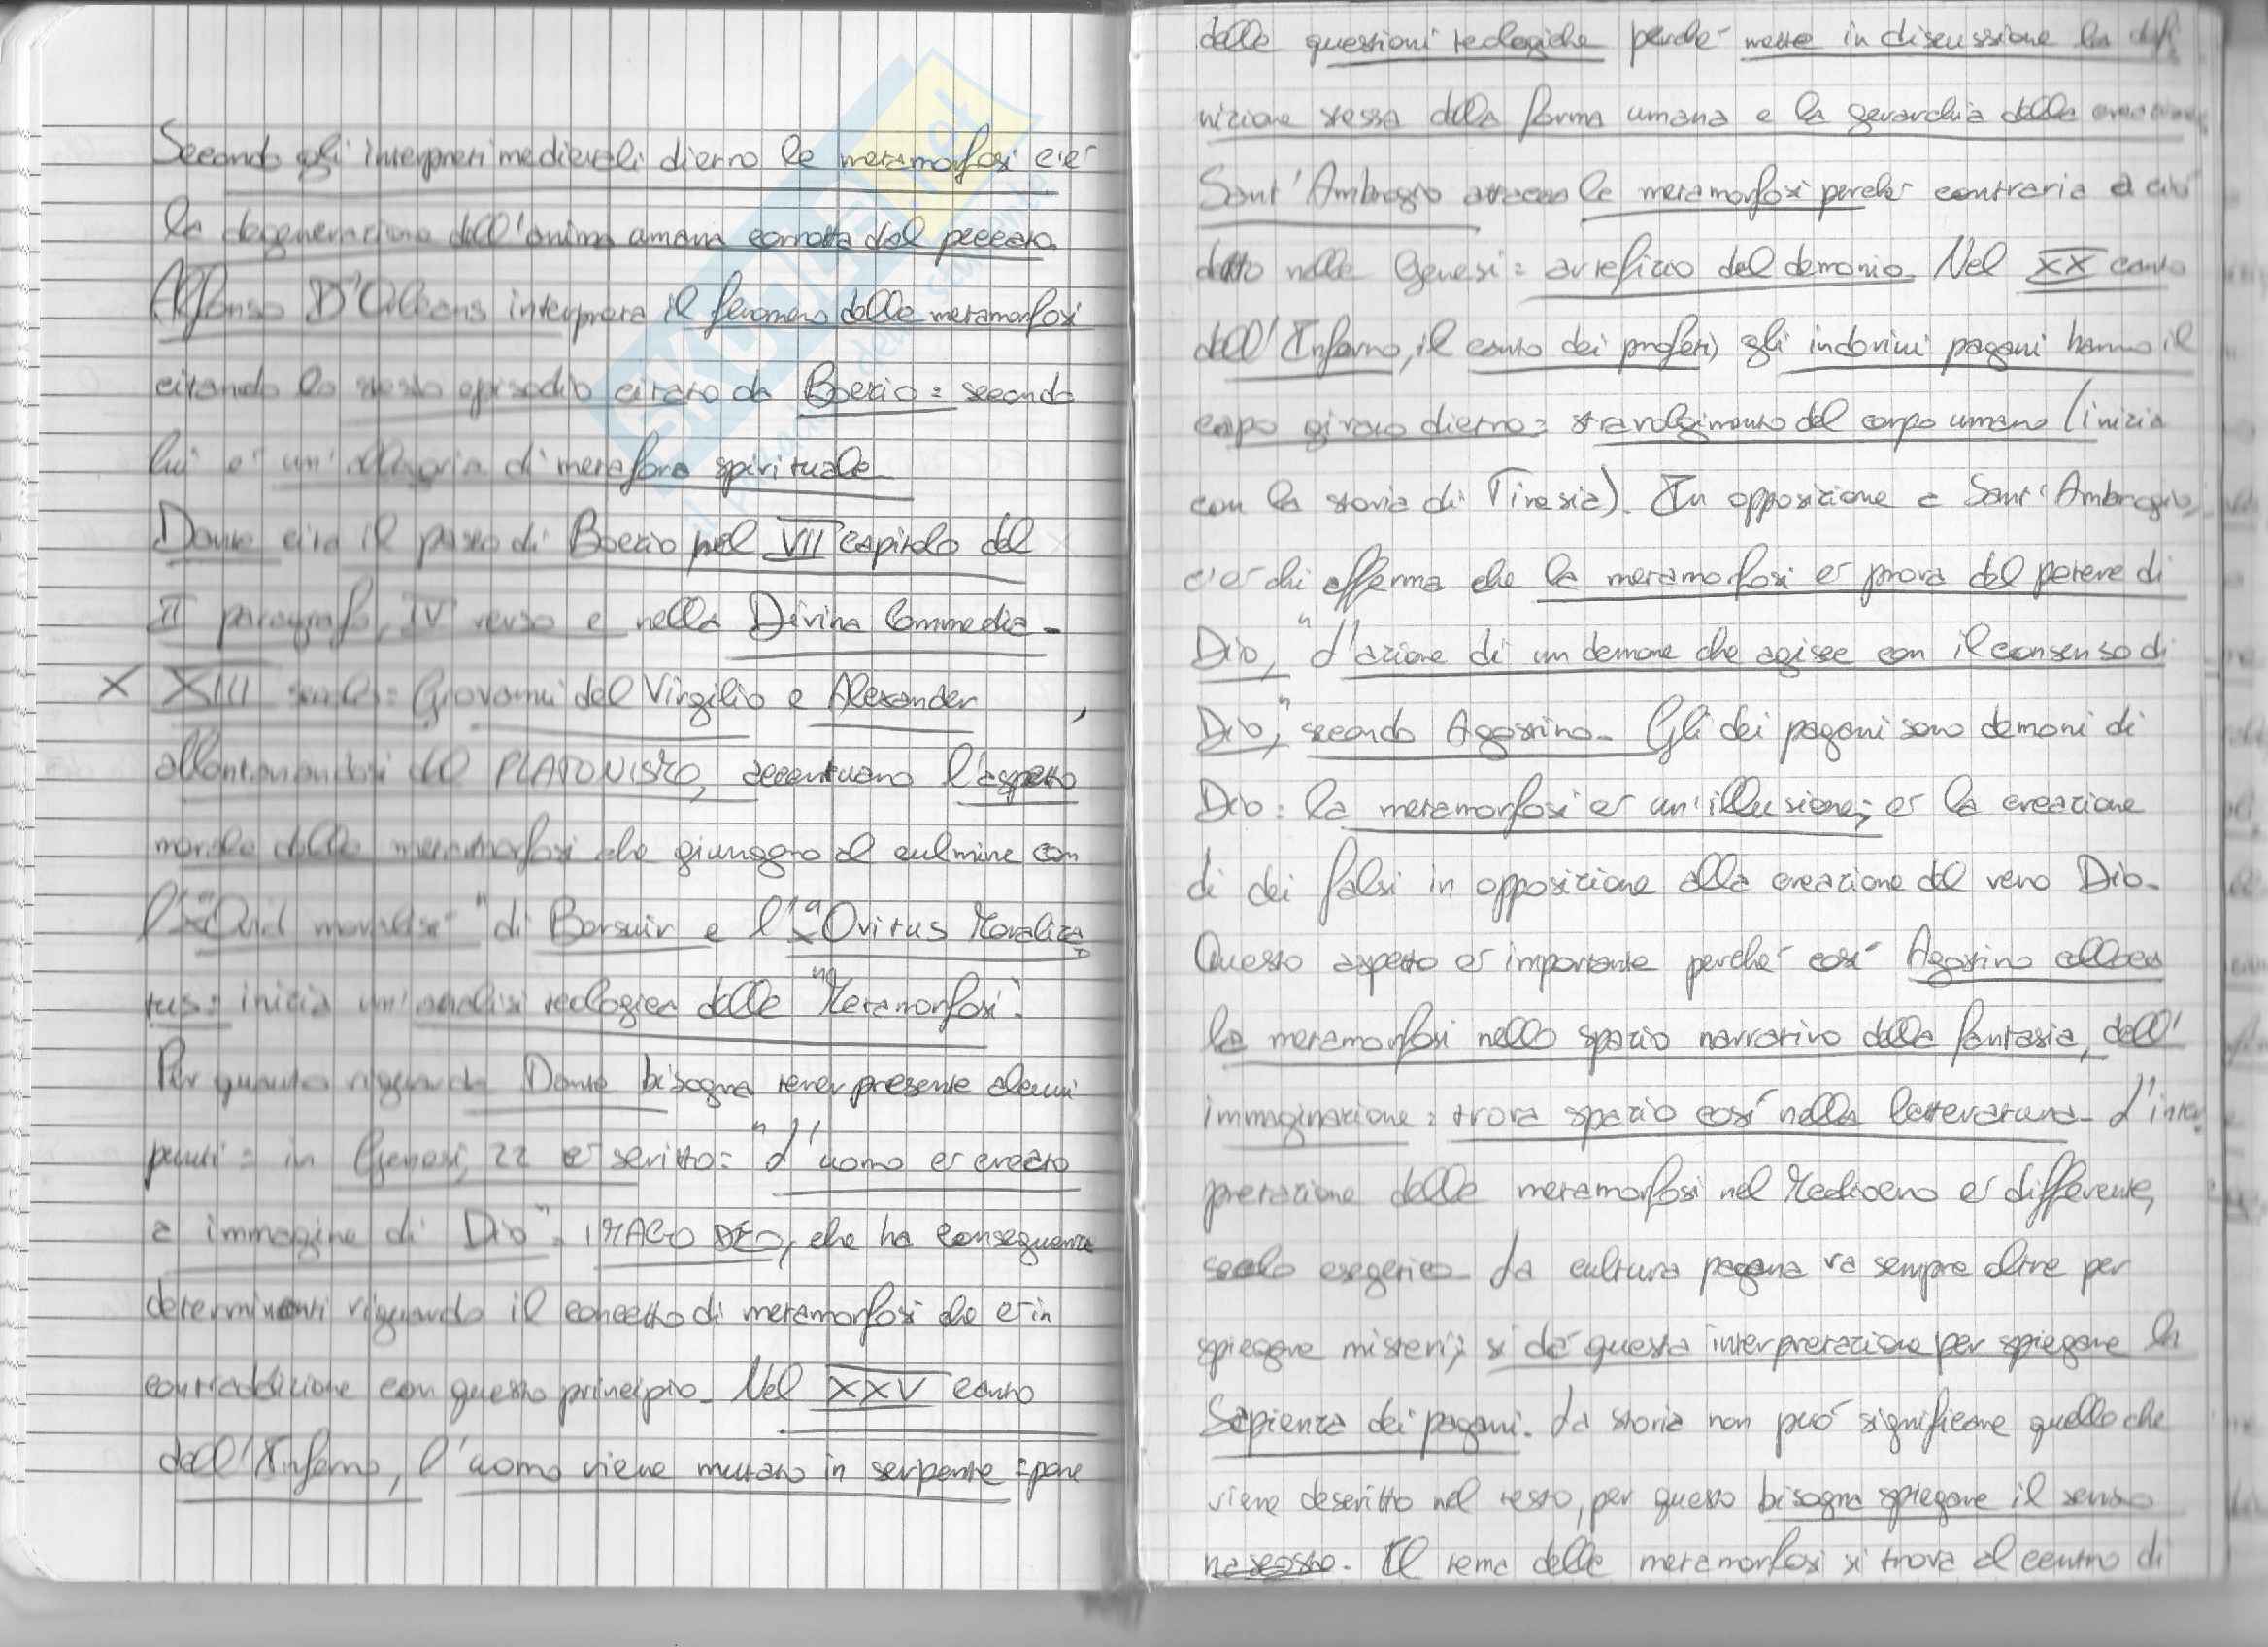 Secondo gli interpreti medievali dietro le metamorfosi c'è
la degenerazione dell'anima umana corrotta dal peccato.
Alfonso D'Orleans interpreta il fenomeno delle metamorfosi
citando lo stesso episodio citato da Boezio: secondo
lui è un'allegoria di metafora spirituale.
Dante cita il passo di Boezio nel VII capitolo del
II paragrafo, IV verso e nella Divina Commedia.
X XIII secolo: Giovanni del Virgilio e Alexander
allontanandosi dal PLATONISMO, accentuano l'aspetto
morale delle metamorfosi che giungono al culmine con
l'"Ovid moralisé" di Borsuir e l'"Ovitus Moraliza
tus: inizia un'analisi teologica delle "Metamorfosi".
Per quanto riguarda Dante bisogna tener presente alcuni
punti: in Genesi, 22 è scritto: "L'uomo è creato
a immagine di Dio": IMAGO DEO, che ha conseguenze
determinanti riguardo il concetto di metamorfosi che è in
contraddizione con questo principio. Nel XXV canto
dell'Inferno, l'uomo viene mutato in serpente: pone
delle questioni teologiche perché mette in discussione la defi
nizione stessa della forma umana e la gerarchia della creazione.
Sant'Ambrogio attacca le metamorfosi perché contraria a ciò
detto nella Genesi: artefizio del demonio. Nel XX canto
dell'Inferno, il canto dei profeti, gli indovini pagani hanno il
capo girato dietro: stravolgimento del corpo umano (inizia
con la storia di Tiresia). In opposizione a Sant'Ambrogio,
c'è chi afferma che la metamorfosi è prova del potere di
Dio, "L'azione di un demone che agisce con il consenso di
Dio", secondo Agostino. Gli dei pagani sono demoni di
Dio: la metamorfosi è un'illusione; è la creazione
di dei falsi in opposizione alla creazione del vero Dio.
Questo aspetto è importante perché così Agostino colloca
la metamorfosi nello spazio narrativo della fantasia, dell'
immaginazione: trova spazio così nella letteratura. L'inter
pretazione delle metamorfosi nel Medioevo è differente,
esegetico. La cultura pagana va sempre oltre per
spiegare misteri; si dà questa interpretazione per spiegare la
Sapienza dei pagani. La storia non può significare quello che
viene descritto nel testo, per questo bisogna spiegare il senso
nascosto. Il tema delle metamorfosi si trova al centro di